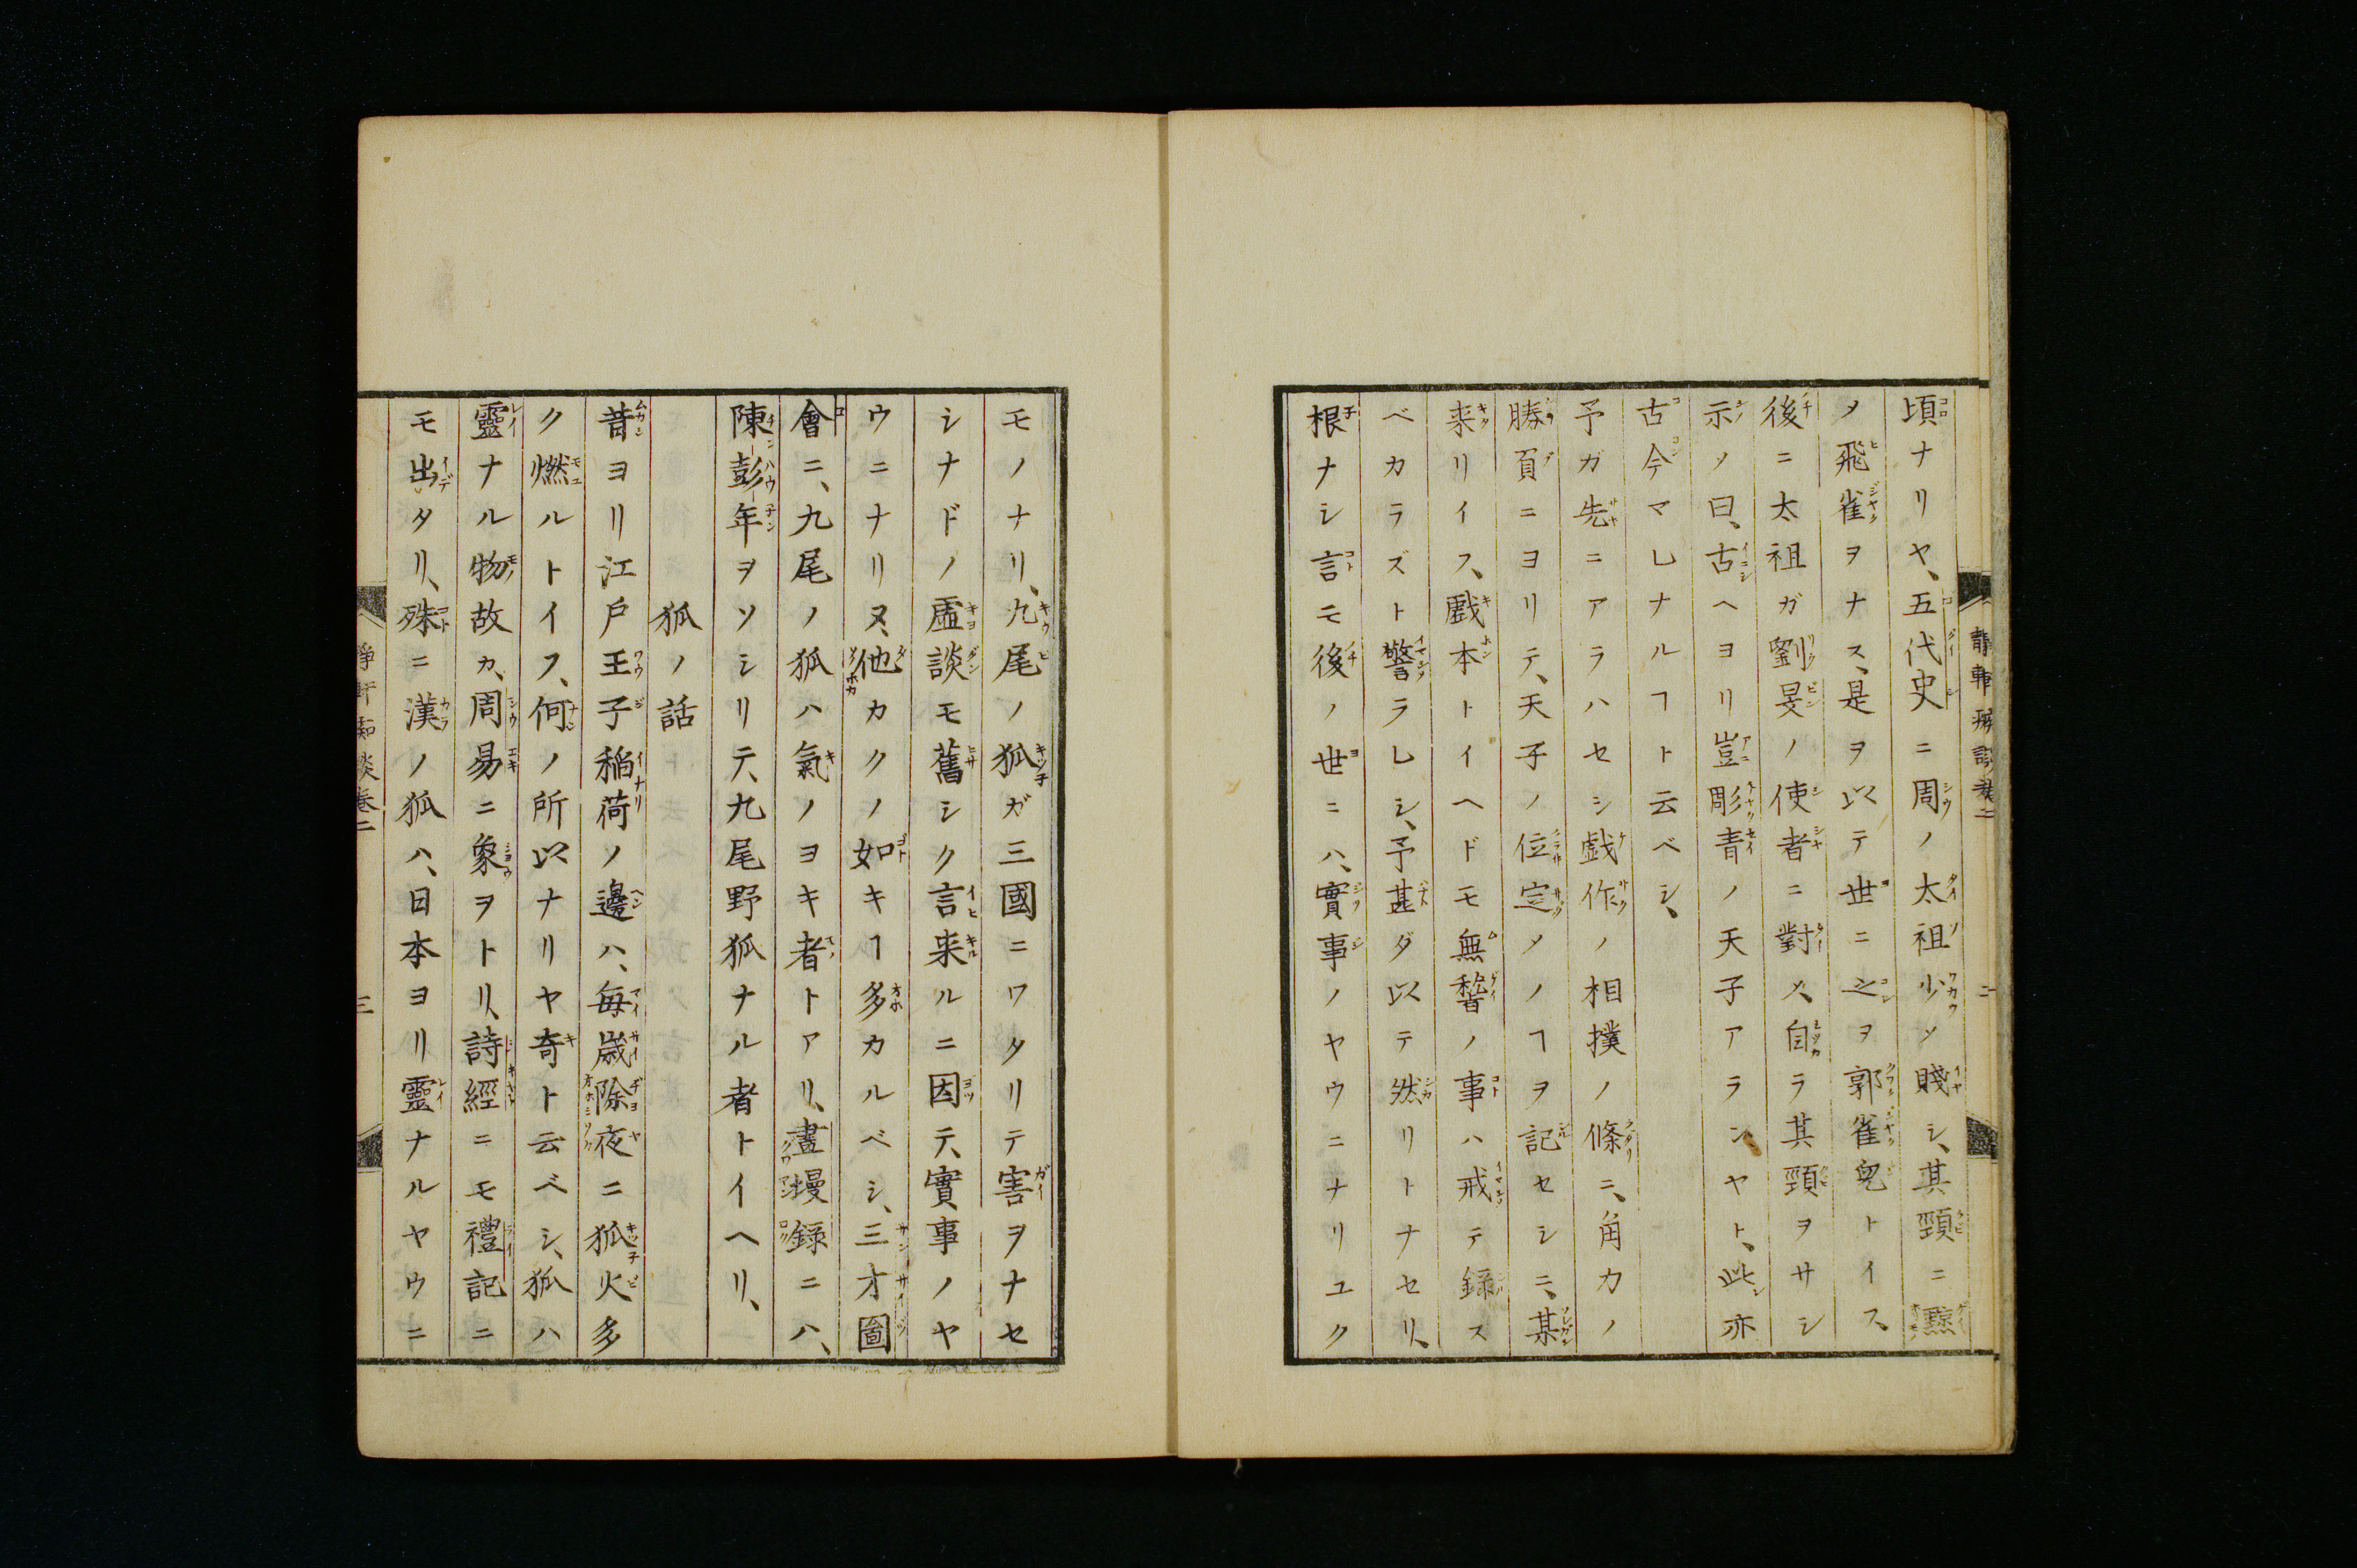 靜軒痴談卷二
二
頃ナリヤ、五代史ニ周ノ太祖少ソ賤シ、其頸ニ黥
メ飛雀ヲナス、是ヲ以テ世ニ之ヲ郭雀兒トイス、
後ニ太祖ガ劉旻ノ使者ニ對〆、自ラ其頸ヲサシ
示ノ曰、古ヘヨリ豈彫青ノ天子アランヤト、此亦
古今マレナルヿト云ベシ、
予ガ先ニアラハセシ戯作ノ相撲ノ條ニ、角力ノ
勝負ニヨリテ、天子ノ位定メノヿヲ記セシニ、某
来リイス、戲本トイヘドモ無稽ノ事ハ戒テ録ス
ベカラズト警ラレシ、予甚ダ以テ然リトナセリ、
根ナシ言モ後ノ世ニハ、實事ノヤウニナリユク
モノナリ、九尾ノ狐ガ三國ニワタリテ害ヲナセ
シナドノ虛談モ舊シク言来ルニ因テ、實事ノヤ
ウニナリヌ、他カクノ如キヿ多カルベシ、三才圖
會ニ、九尾ノ狐ハ氣ノヨキ者トアリ、畫墁録ニハ、
陳彭年ヲソシリテ、九尾野狐ナル者トイヘリ、
狐ノ話
昔ヨリ江戸王子稲荷ノ邊ハ、毎歳除夜ニ狐火多
ク燃ルトイフ、何ノ所以ナリヤ奇ト云ベシ、狐ハ
靈ナル物故カ、周易ニ象ヲトリ、詩經ニモ禮記ニ
モ出タリ、殊ニ漢ノ狐ハ、日本ヨリ靈ナルヤウニ
靜軒痴談卷二
三